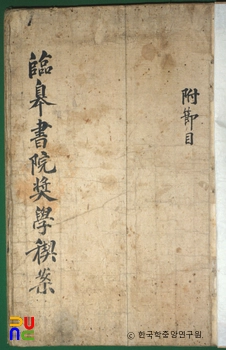 附節目
臨皐書院奬學稧案
한국학중앙연구원